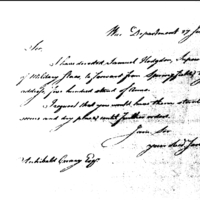 War Department 27 Ju
Sir,
I have directed Samuel Hodgdon, Super
of Military Stores, to forward from Springfield,
address five hundred stand of Arms.
I request that you would have them stored
some and dry place, until further orders.
I am Sir
your obed Serv
Archibald Crary Esqr